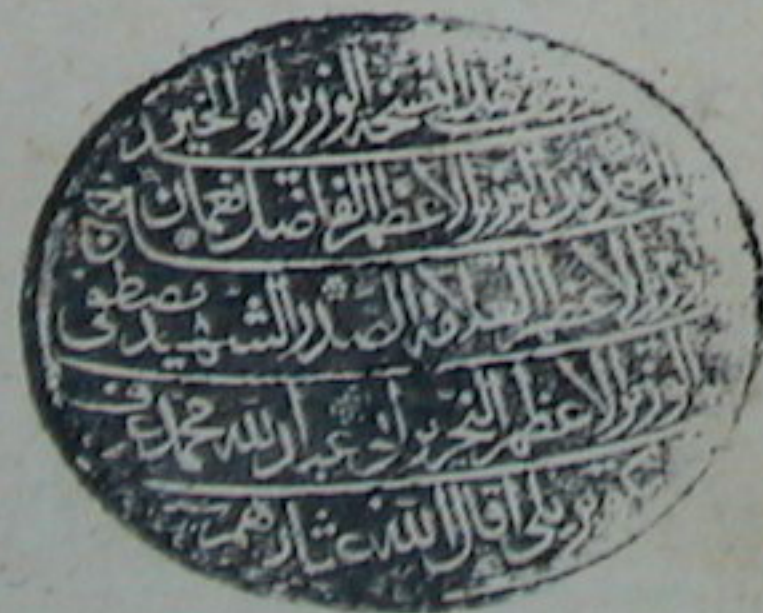 هذه النسخة الوزير أبو الخير
أحمد بن الوزير الأعظم الفاضل نعمان بن
الوزير الأعظم العلامة الصدر الشهيد مصطفى
الوزير الأعظم النحرير أبي عبد الله محمد عرف
بكوبريلي أقال الله عثارهم